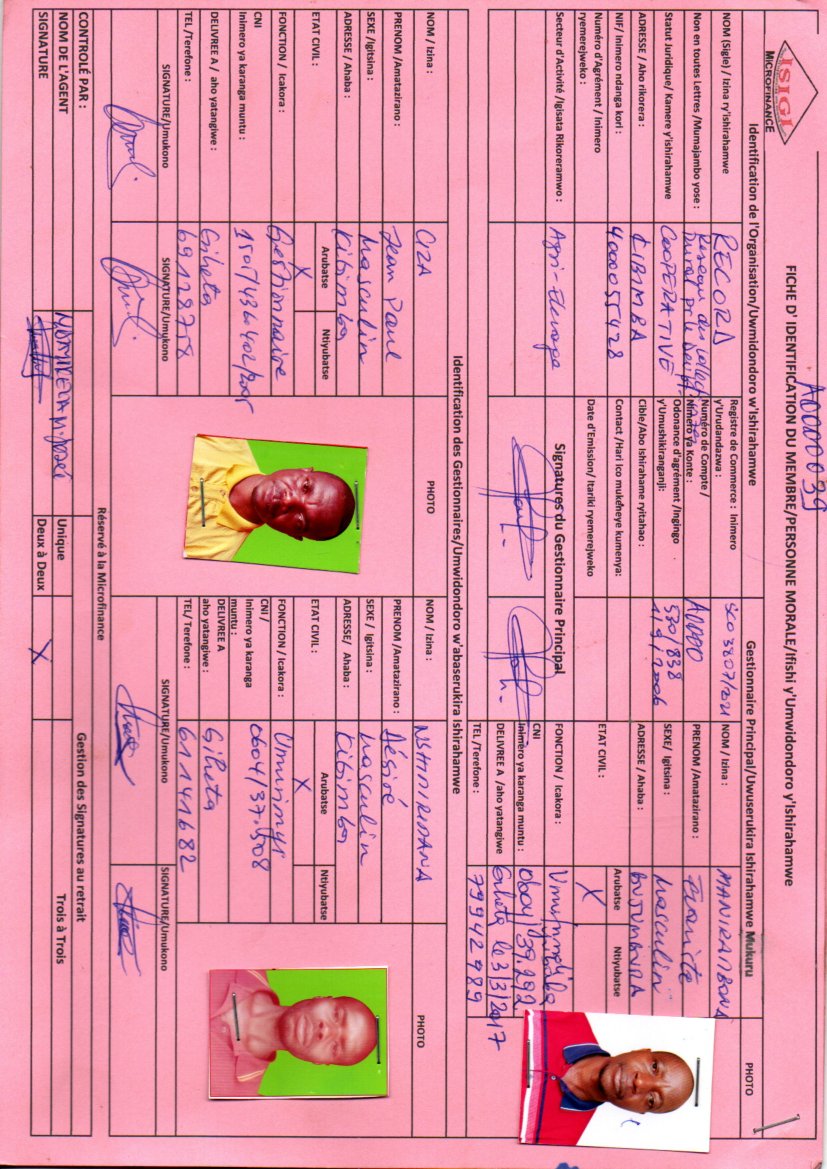 A0000039
ISIGI
MICROFINANCE
FICHE D' IDENTIFICATION DU MEMBRE/PERSONNE MORALE/Ifishi y'Umwidondoro y'Ishirahamwe
Identification de l'Organisation/Uwmidondoro w'Ishirahamwe
Gestionnaire Principal/Uwuserukira Ishirahamwe Mukuru
PHOTO
NOM (Sigle) / Izina ry'ishirahamwe
RECORD
Registre de Commerce : Inimero y'Urudandazwa :
NOM / Izina :
MANIRAMBONA
Non en toutes Lettres /Mumajambo yose :
Réseau des collect
rural pr le
Numéro de Compte / Nimero ya Konte :
A0000
PRENOM /Amatazirano :
Statut Juridique/ Kamere y'ishirahamwe
COOPERATIVE
Odonance d'agrément /Ingingo y'Umushikiranganji:
530/838
SEXE/ Igitsina :
Masculin
ADRESSE / Aho rikorera :
KIBIMBA
Cible/Abo ishirahame ryitahao :
ADRESSE / Ahaba :
BUJUMBURA
NIF/ Inimero ndanga kori :
4000055428
Contact /Hari ico mukeneye kumenya:
ETAT CIVIL :
Arubatse
Ntiyubatse
X
Numéro d'Agrément / Inimero ryemerejweko :
Date d'Emission/ Itariki ryemerejweko
Secteur d'Activité /Igisata Rikoreramwo :
Agri-Elevage
Signatures du Gestionnaire Principal
FONCTION / Icakora :
CNI
Inimero ya karanga muntu :
0604/39.292
DELIVREE A /aho yatangiwe
Giheta le 3/3/2017
TEL /Terefone :
79942989
Identification des Gestionnaires/Umwidondoro w'abaserukira Ishirahamwe
NOM / Izina :
CIZA
PHOTO
NOM / Izina :
NSHIMIRIMANA
PHOTO
PRENOM /Amatazirano :
Jean Paul
PRENOM /Amatazirano :
Désiré
SEXE /Igitsina :
Masculin
SEXE / Igitsina :
Masculin
ADRESSE / Ahaba :
Kibimba
ADRESSE/ Ahaba :
Kibimba
ETAT CIVIL :
Arubatse
Ntiyubatse
X
ETAT CIVIL :
Arubatse
Ntiyubatse
X
FONCTION / Icakora :
Gestionnaire
FONCTION / Icakora :
CNI
Inimero ya karanga muntu :
CNI /
Inimero ya karanga muntu :
0604/37.508
DELIVREE A / aho yatangiwe :
Giheta
DELIVREE A aho yatangiwe :
Giheta
TEL /Terefone :
69118758
TEL/ Terefone :
61141682
SIGNATURE/Umukono
SIGNATURE/Umukono
SIGNATURE/Umukono
SIGNATURE/Umukono
Réservé à la Microfinance
CONTROLÉ PAR :
Gestion des Signatures au retrait
NOM DE L'AGENT
Unique
Trois à Trois
SIGNATURE
Deux à Deux
X